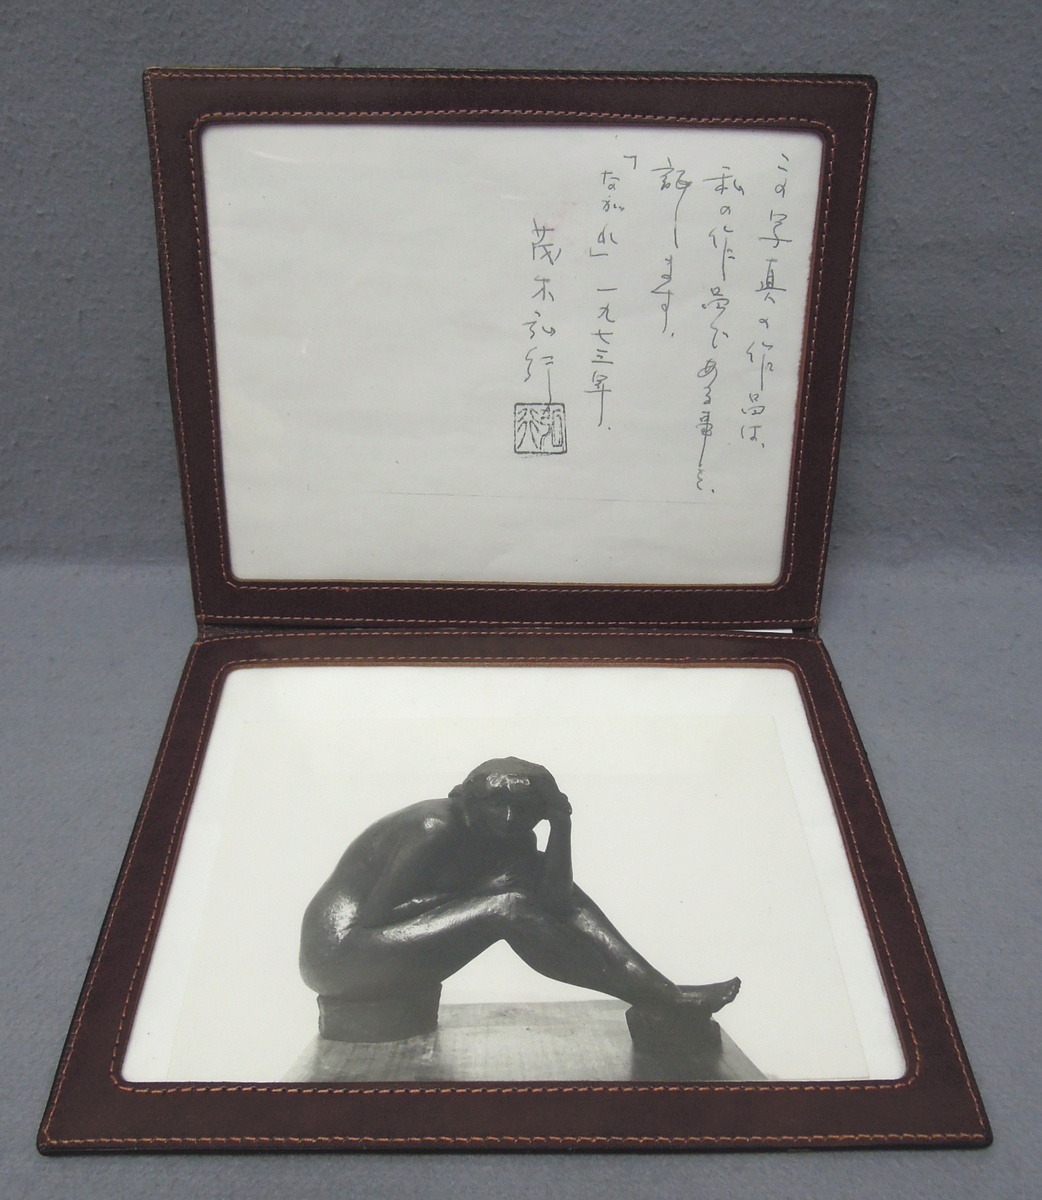 この写真の作品は、
私の作品である事を、
記します。
「ながれ」一九七三年、
茂木弘行
弘行